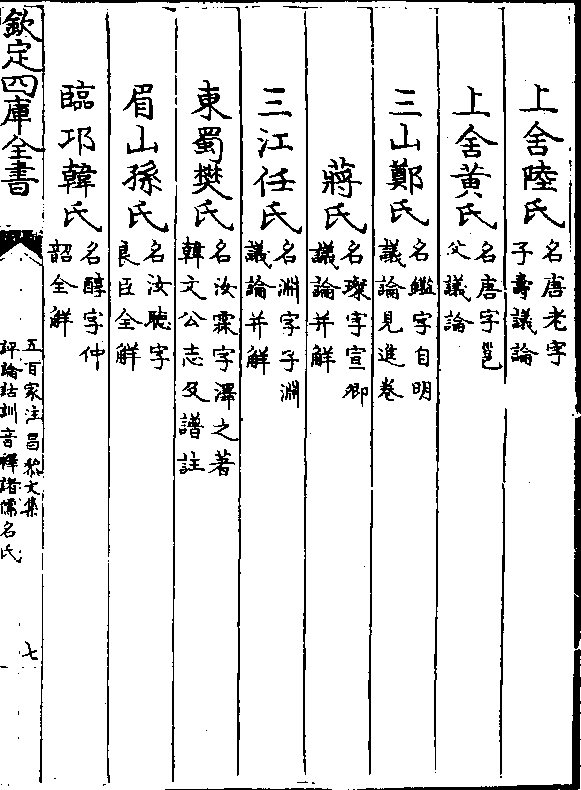 上舍陸氏名唐老字子壽議論
上舍黃氏名唐字邕父議論
三山鄭氏名鑑字自明議論見進卷
蔣氏名璨字宣卿議論并解
三江任氏名淵字子淵議論并解
東蜀樊氏名汝霖字澤之著韓文公志及譜註
眉山孫氏名汝聴字良臣全解
臨邛韓氏名醇字仲韶全解
欽定四庫全書
五百家注昌黎文集
評論詁訓音釋諸儒名氏
七